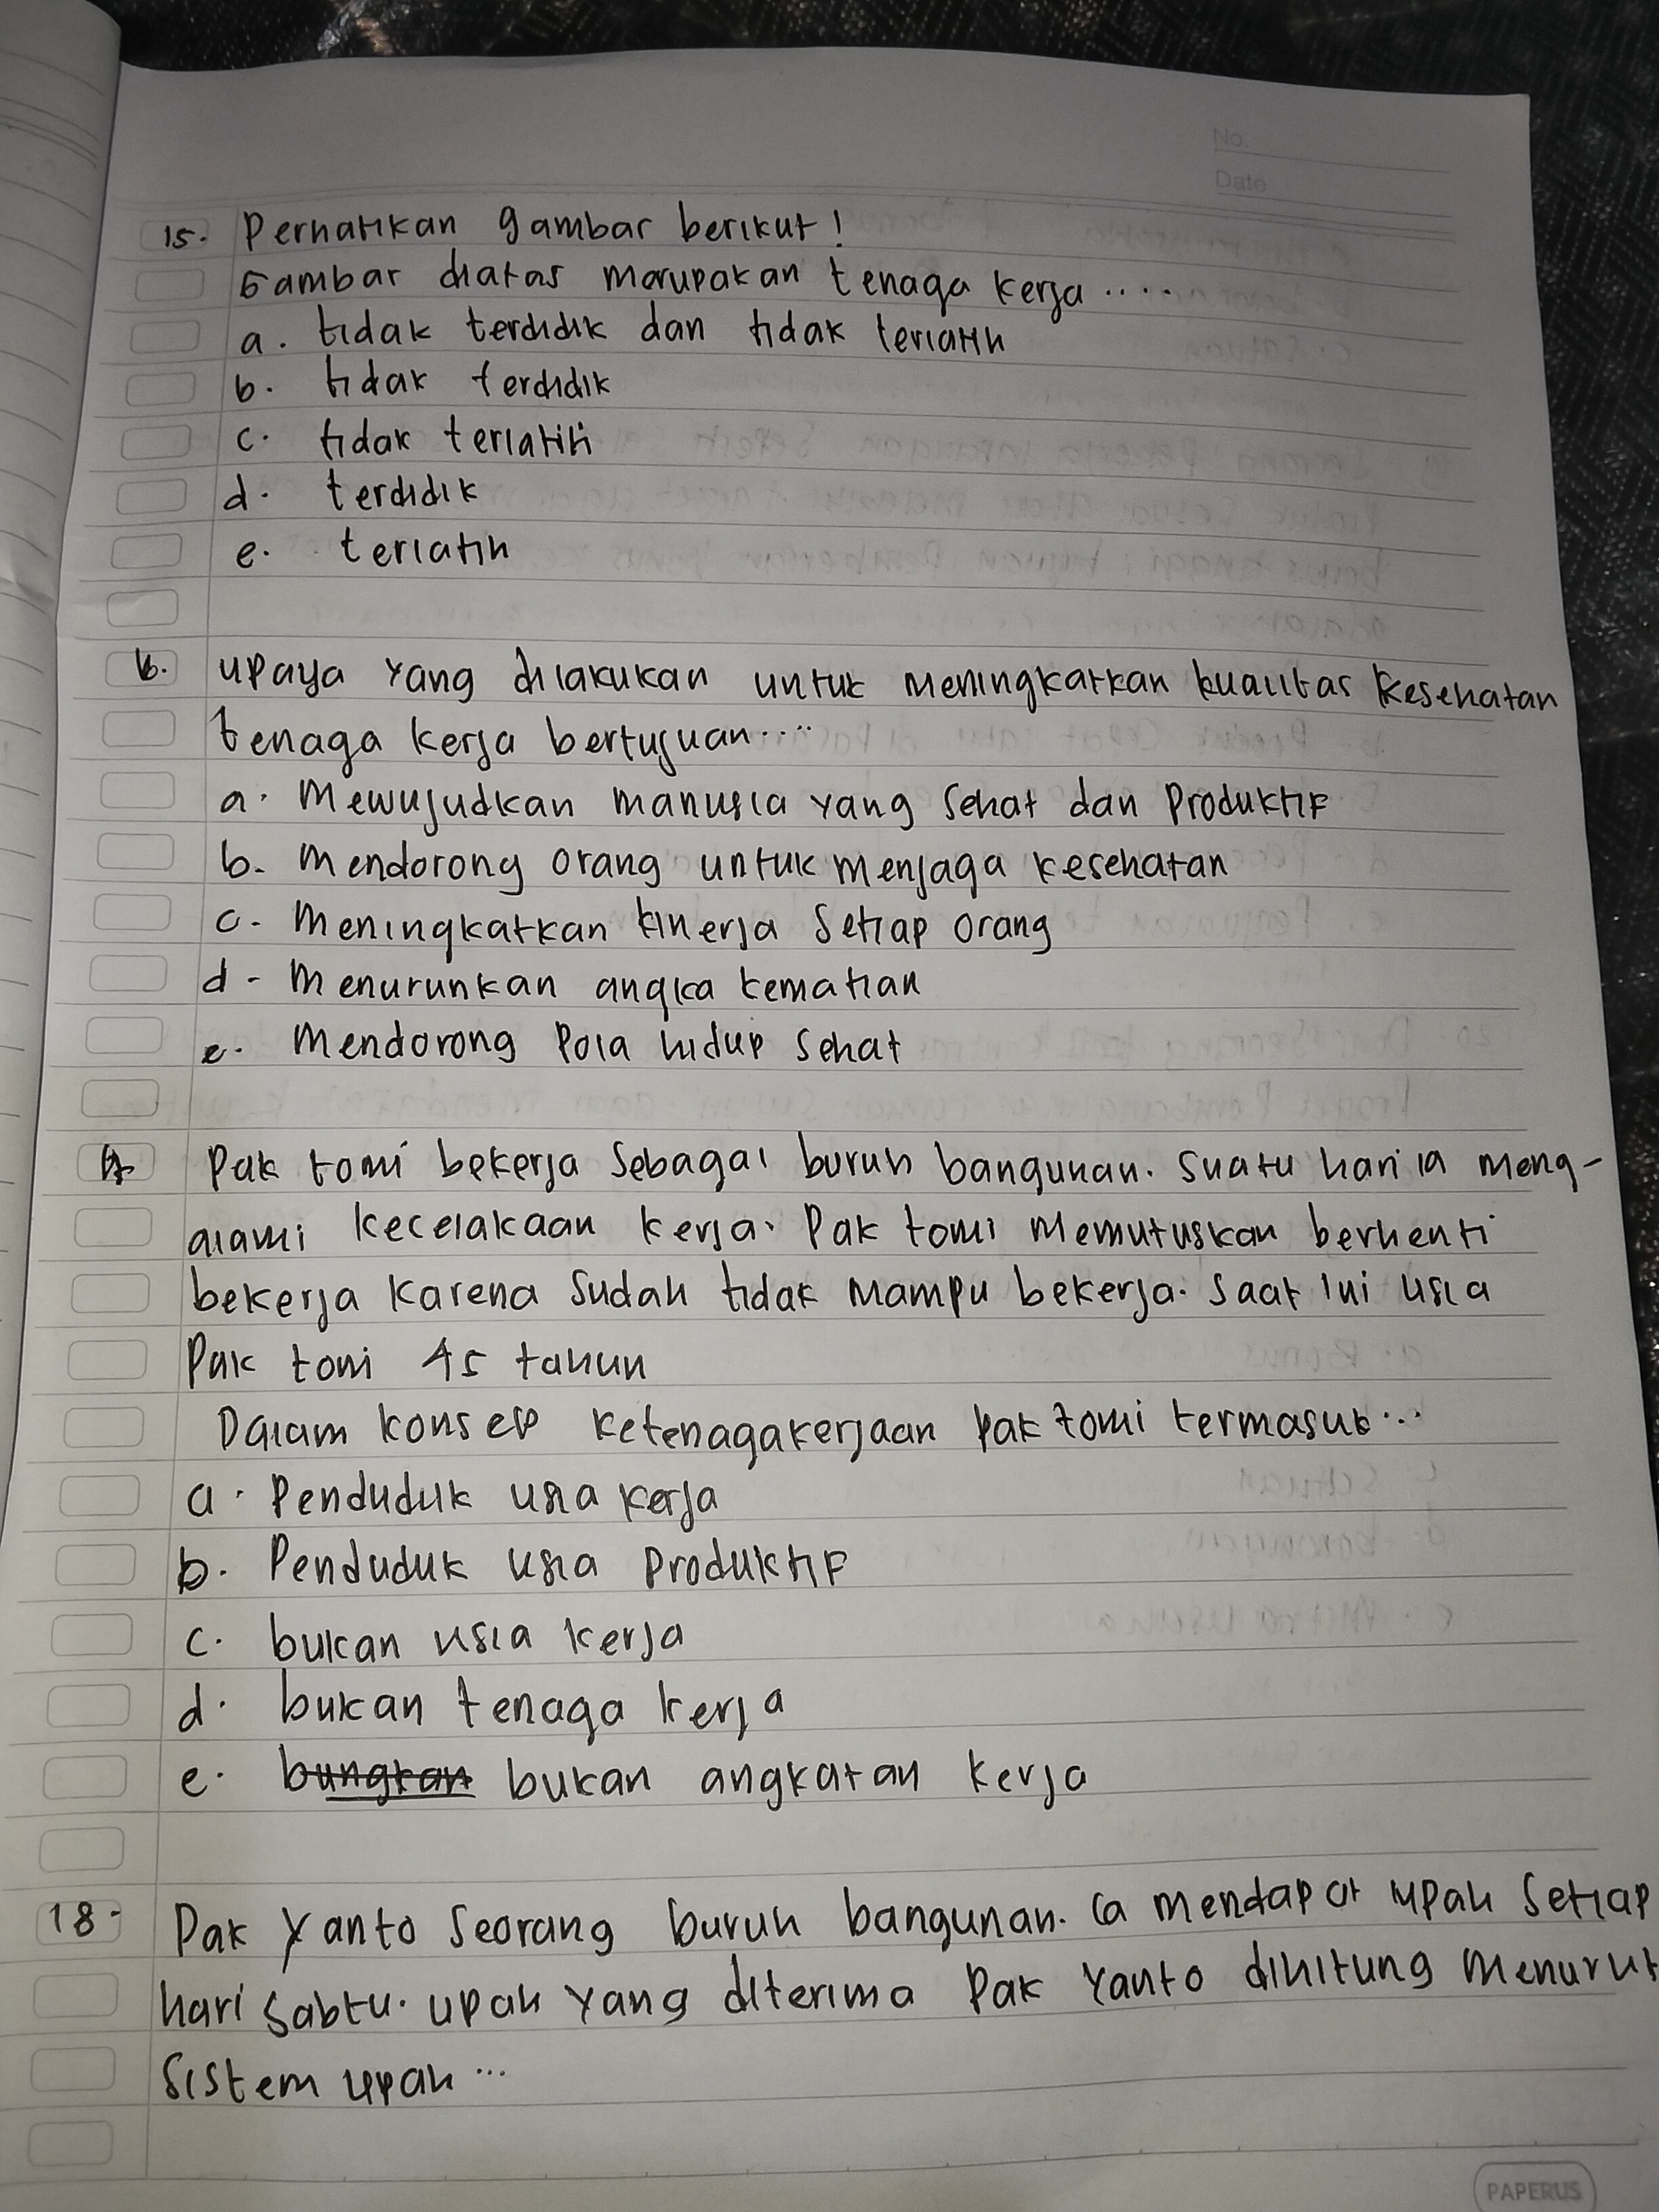 No.
Date
15. Perhatikan gambar berikut!
Gambar diatas merupakan tenaga kerja .....
a. tidak terdidik dan tidak terlatih
b. tidak terdidik
c. tidak terlatih
d. terdidik
e. terlatih
16. upaya yang dilakukan untuk meningkatkan kualitas kesehatan
tenaga kerja bertujuan....
a. Mewujudkan manusia yang sehat dan Produktif
b. Mendorong orang untuk menjaga kesehatan
c. Meningkatkan kinerja setiap orang
d. Menurunkan angka kematian
e. Mendorong Pola hidup sehat
17 Pak tomi bekerja sebagai buruh bangunan. suatu hari ia meng-
alami kecelakaan kerja. Pak tomi Memutuskan berhenti
bekerja karena sudah tidak mampu bekerja. saat ini usia
Pak tomi 45 tahun
Dalam konsep ketenagakerjaan pak tomi termasuk...
a. Penduduk usia kerja
b. Penduduk usia Produktif
c. bukan usia kerja
d. bukan tenaga kerja
e. bungkan bukan angkatan kerja
18. Pak Yanto seorang buruh bangunan. ia mendapat upah setiap
hari sabtu. upah yang diterima Pak Yanto dihitung menurut
sistem upah...
PAPERUS